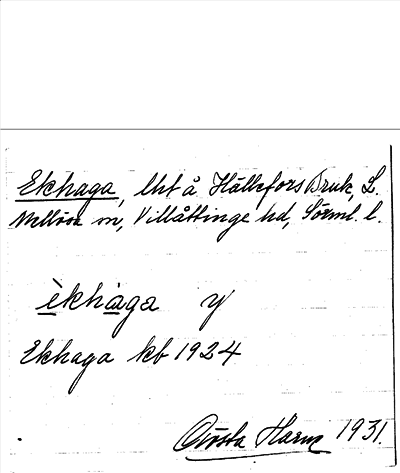 Ekhaga, lht å Hällefors Bruk, L.
Mellösa sn, Villåttinge hd, Sörml. l.
èkhàga y
Ekhaga kb 1924
Gösta Harn 1931.